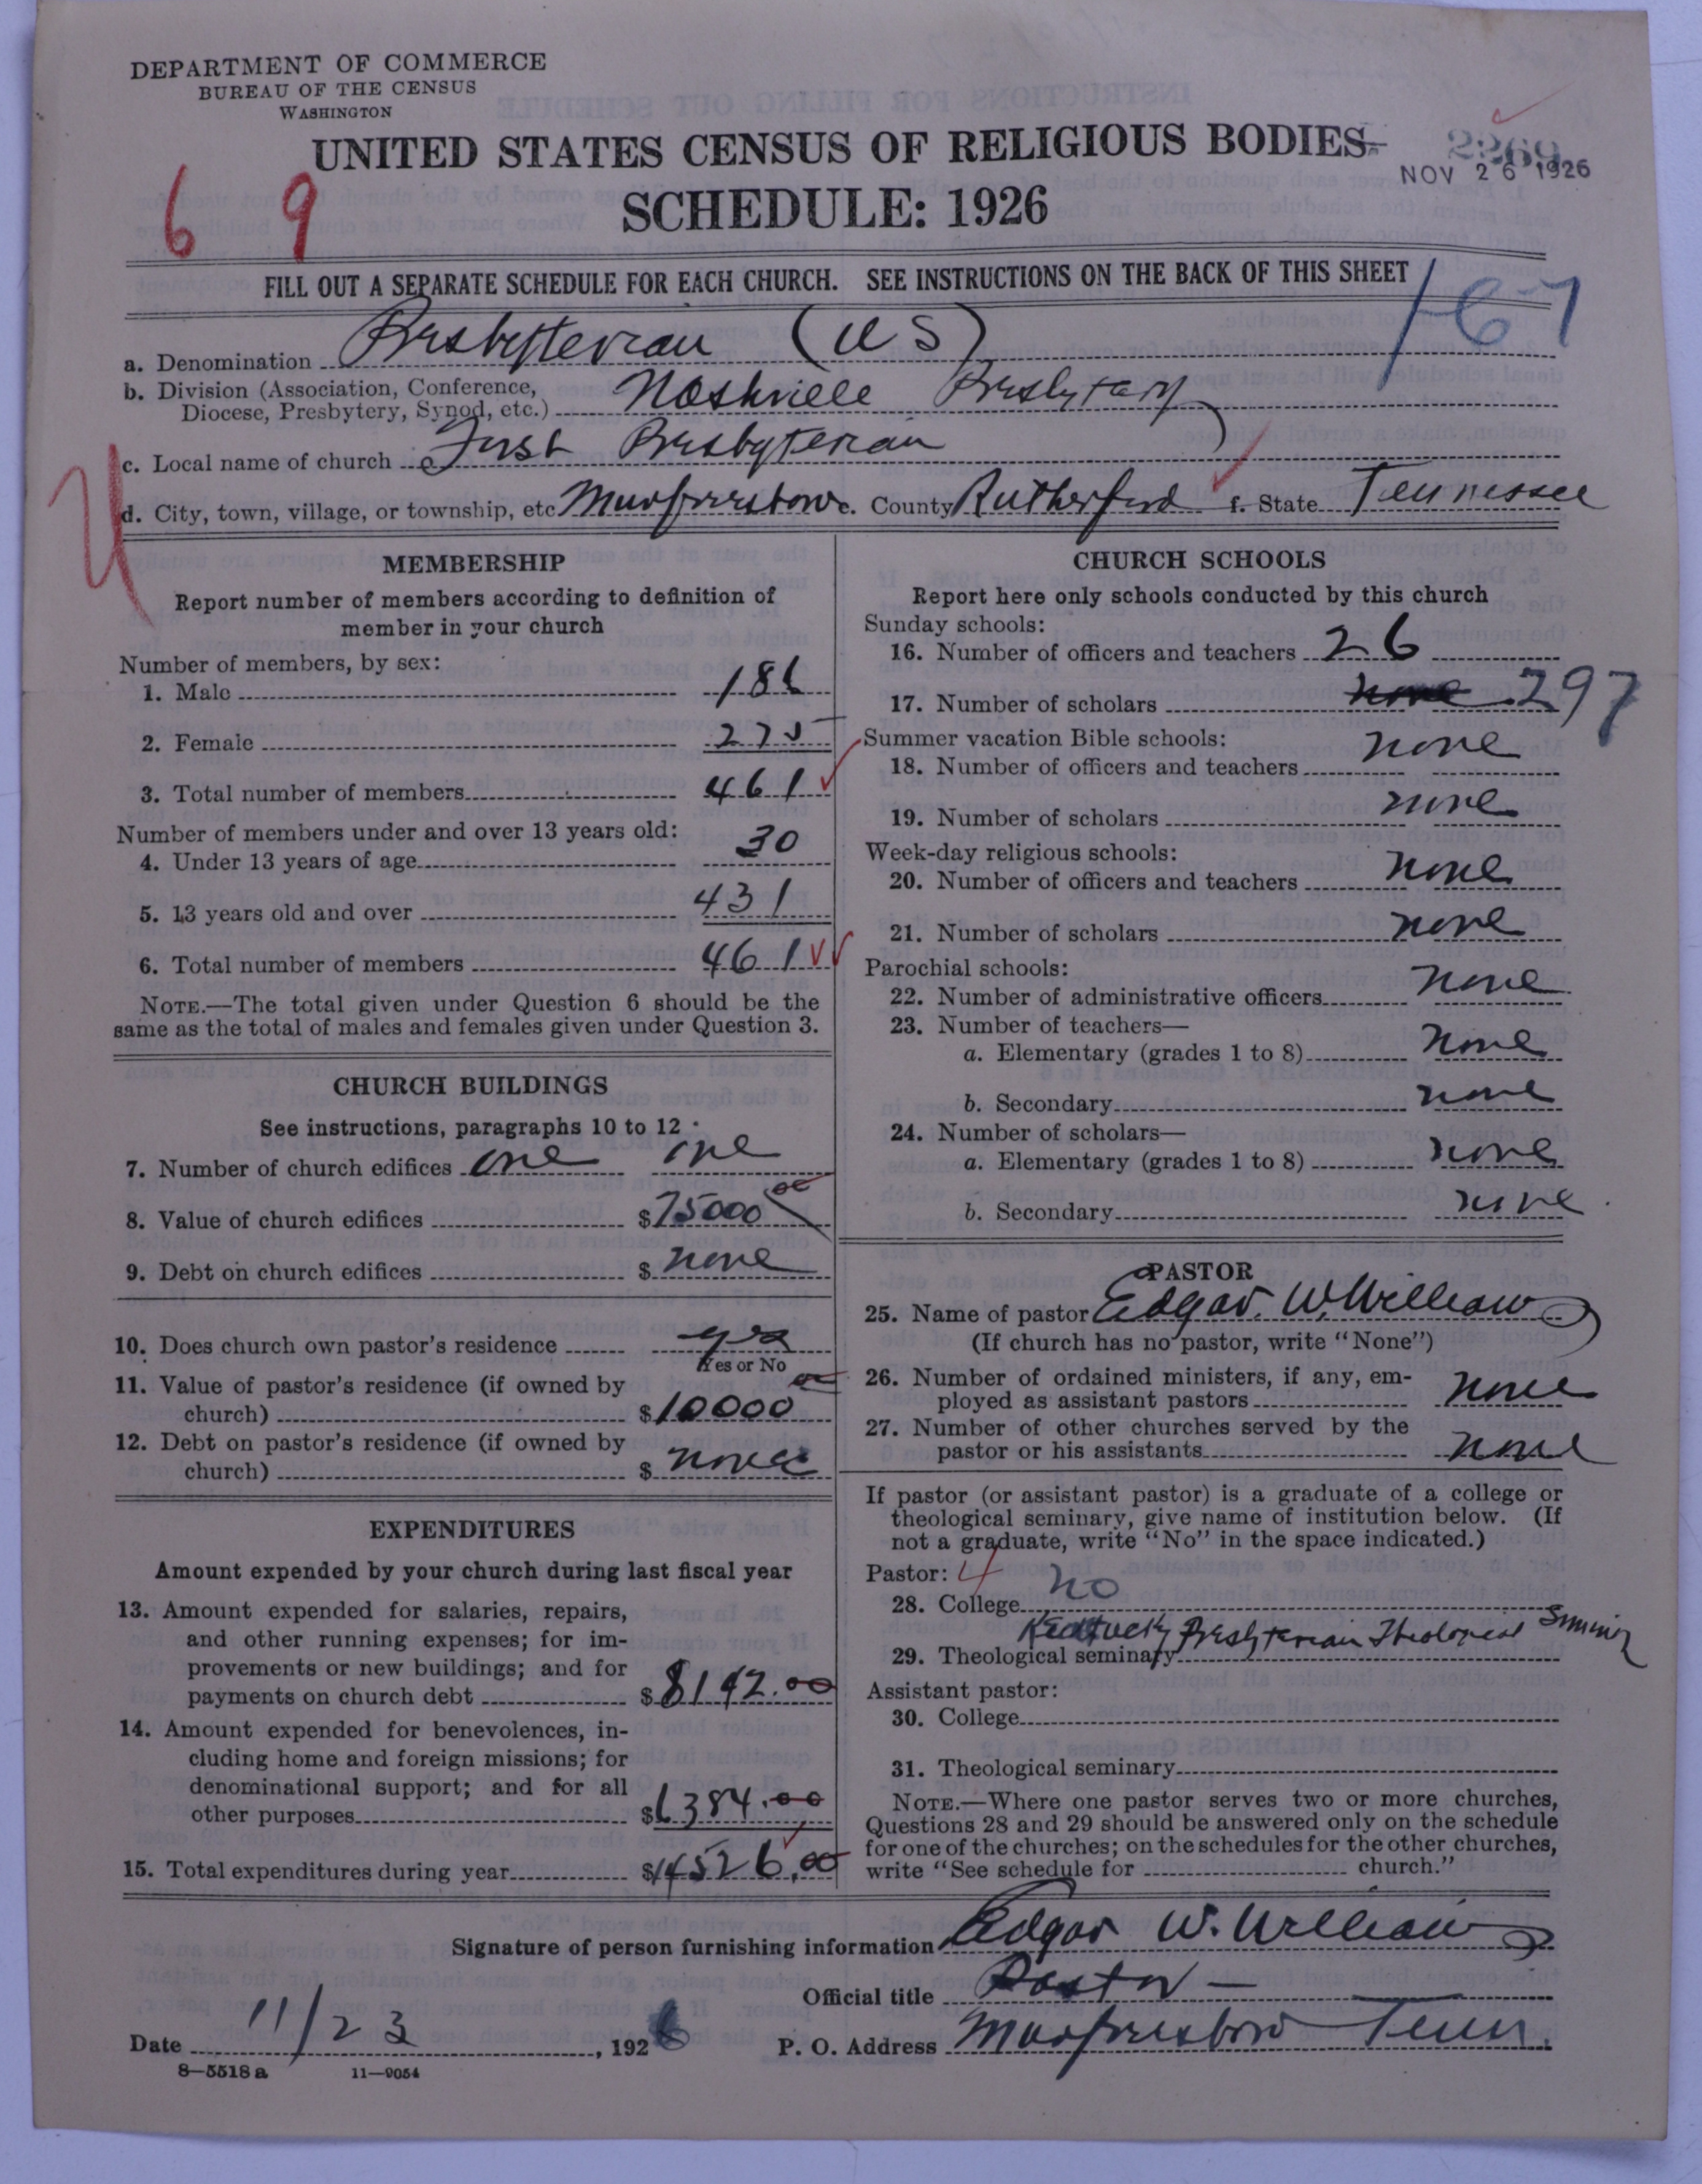 DEPARTMENT OF COMMERCE
BUREAU OF THE CENSUS
WASHINGTON
UNITED STATES CENSUS OF RELIGIOUS BODIES
2269
NOV 26 1926
SCHEDULE: 1926
6 9
FILL OUT A SEPARATE SCHEDULE FOR EACH CHURCH. SEE INSTRUCTIONS ON THE BACK OF THIS SHEET
167
a. Denomination Presbyterian (US)
b. Division (Association, Conference, Diocese, Presbytery, Synod, etc.) Nashville Presbytery
c. Local name of church First Presbyterian
d. City, town, village, or township, etc Murfreesboro e. County Rutherford f. State Tennessee
MEMBERSHIP
Report number of members according to definition of
member in your church
Number of members, by sex:
1. Male 186
2. Female 275
3. Total number of members 461
Number of members under and over 13 years old:
4. Under 13 years of age 30
5. 13 years old and over 431
6. Total number of members 461
NOTE.—The total given under Question 6 should be the
same as the total of males and females given under Question 3.
CHURCH BUILDINGS
See instructions, paragraphs 10 to 12
7. Number of church edifices one one
8. Value of church edifices $75000 00
9. Debt on church edifices $ none
10. Does church own pastor's residence yes
Yes or No
11. Value of pastor's residence (if owned by
church) $10000 00
12. Debt on pastor's residence (if owned by
church) $ none
EXPENDITURES
Amount expended by your church during last fiscal year
13. Amount expended for salaries, repairs,
and other running expenses; for im-
provements or new buildings; and for
payments on church debt $8142.00
14. Amount expended for benevolences, in-
cluding home and foreign missions; for
denominational support; and for all
other purposes $6384.00
15. Total expenditures during year $14526.00
CHURCH SCHOOLS
Report here only schools conducted by this church
Sunday schools:
16. Number of officers and teachers 26
17. Number of scholars none 297
Summer vacation Bible schools:
18. Number of officers and teachers none
19. Number of scholars none
Week-day religious schools:
20. Number of officers and teachers none
21. Number of scholars none
Parochial schools:
22. Number of administrative officers none
23. Number of teachers—
a. Elementary (grades 1 to 8) none
b. Secondary none
24. Number of scholars—
a. Elementary (grades 1 to 8) none
b. Secondary none
PASTOR
25. Name of pastor Edgar W. Williams
(If church has no pastor, write "None")
26. Number of ordained ministers, if any, em-
ployed as assistant pastors none
27. Number of other churches served by the
pastor or his assistants none
If pastor (or assistant pastor) is a graduate of a college or
theological seminary, give name of institution below. (If
not a graduate, write "No" in the space indicated.)
Pastor: 4
28. College no
29. Theological seminary Kentucky Presbyterian Theological
Assistant pastor:
30. College
31. Theological seminary
NOTE.—Where one pastor serves two or more churches,
Questions 28 and 29 should be answered only on the schedule
for one of the churches; on the schedules for the other churches,
write "See schedule for church."
Signature of person furnishing information Edgar W. Williams
Official title Pastor
Date 11/23, 1926 P. O. Address Murfreesboro Tenn.
8—5518 a 11—9054